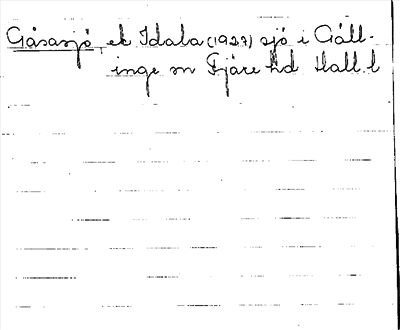 Gåsasjö, ek Idala (1927) sjö i Gäll-
inge sn Fjäre hd Hall. l